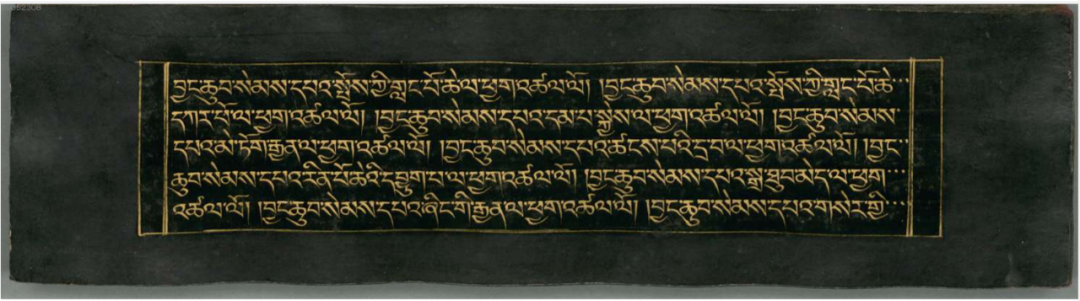 བྱང་ཆུབ་སེམས་དཔའ་སྤོས་ཀྱི་གླང་པོ་ཆེ་ལ་ཕྱག་འཚལ་ལོ། །བྱང་ཆུབ་སེམས་དཔའ་སྤོས་ཀྱི་གླང་པོ་ཆེ་
དཀར་པོ་ལ་ཕྱག་འཚལ་ལོ། །བྱང་ཆུབ་སེམས་དཔའ་དམ་པ་སྐྱེས་ལ་ཕྱག་འཚལ་ལོ། །བྱང་ཆུབ་སེམས་
དཔའ་མེ་ཏོག་རྒྱན་ལ་ཕྱག་འཚལ་ལོ། །བྱང་ཆུབ་སེམས་དཔའ་ཚངས་པའི་དྲ་བ་ལ་ཕྱག་འཚལ་ལོ། །བྱང་
ཆུབ་སེམས་དཔའ་རིན་པོ་ཆེའི་དབྱུག་པ་ལ་ཕྱག་འཚལ་ལོ། །བྱང་ཆུབ་སེམས་དཔའ་སྒྲ་ཐུབ་མེད་ལ་ཕྱག་
འཚལ་ལོ། །བྱང་ཆུབ་སེམས་དཔའ་ཞིང་གི་རྒྱན་ལ་ཕྱག་འཚལ་ལོ། །བྱང་ཆུབ་སེམས་དཔའ་གསེར་གྱི་